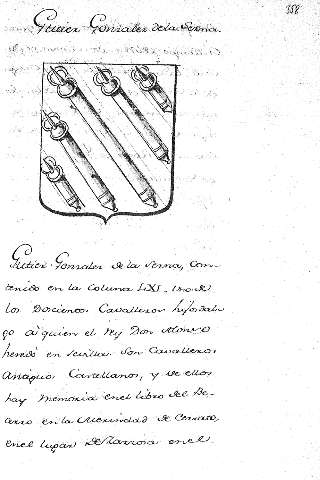 358
Gutier Gonzalez de la Serna.
Gutier Gonzalez de la Serna, con-
tenido en la coluna LXI. uno de
los Docientos Cavalleros hijosdal-
go a quien el Rey Don Alonso
heredó en Sevilla. Son Cavalleros
Antiguos Castellanos, y de ellos
hay memoria en el libro del Be-
cerro en la Merindad de Cerrato,
en el lugar de en el